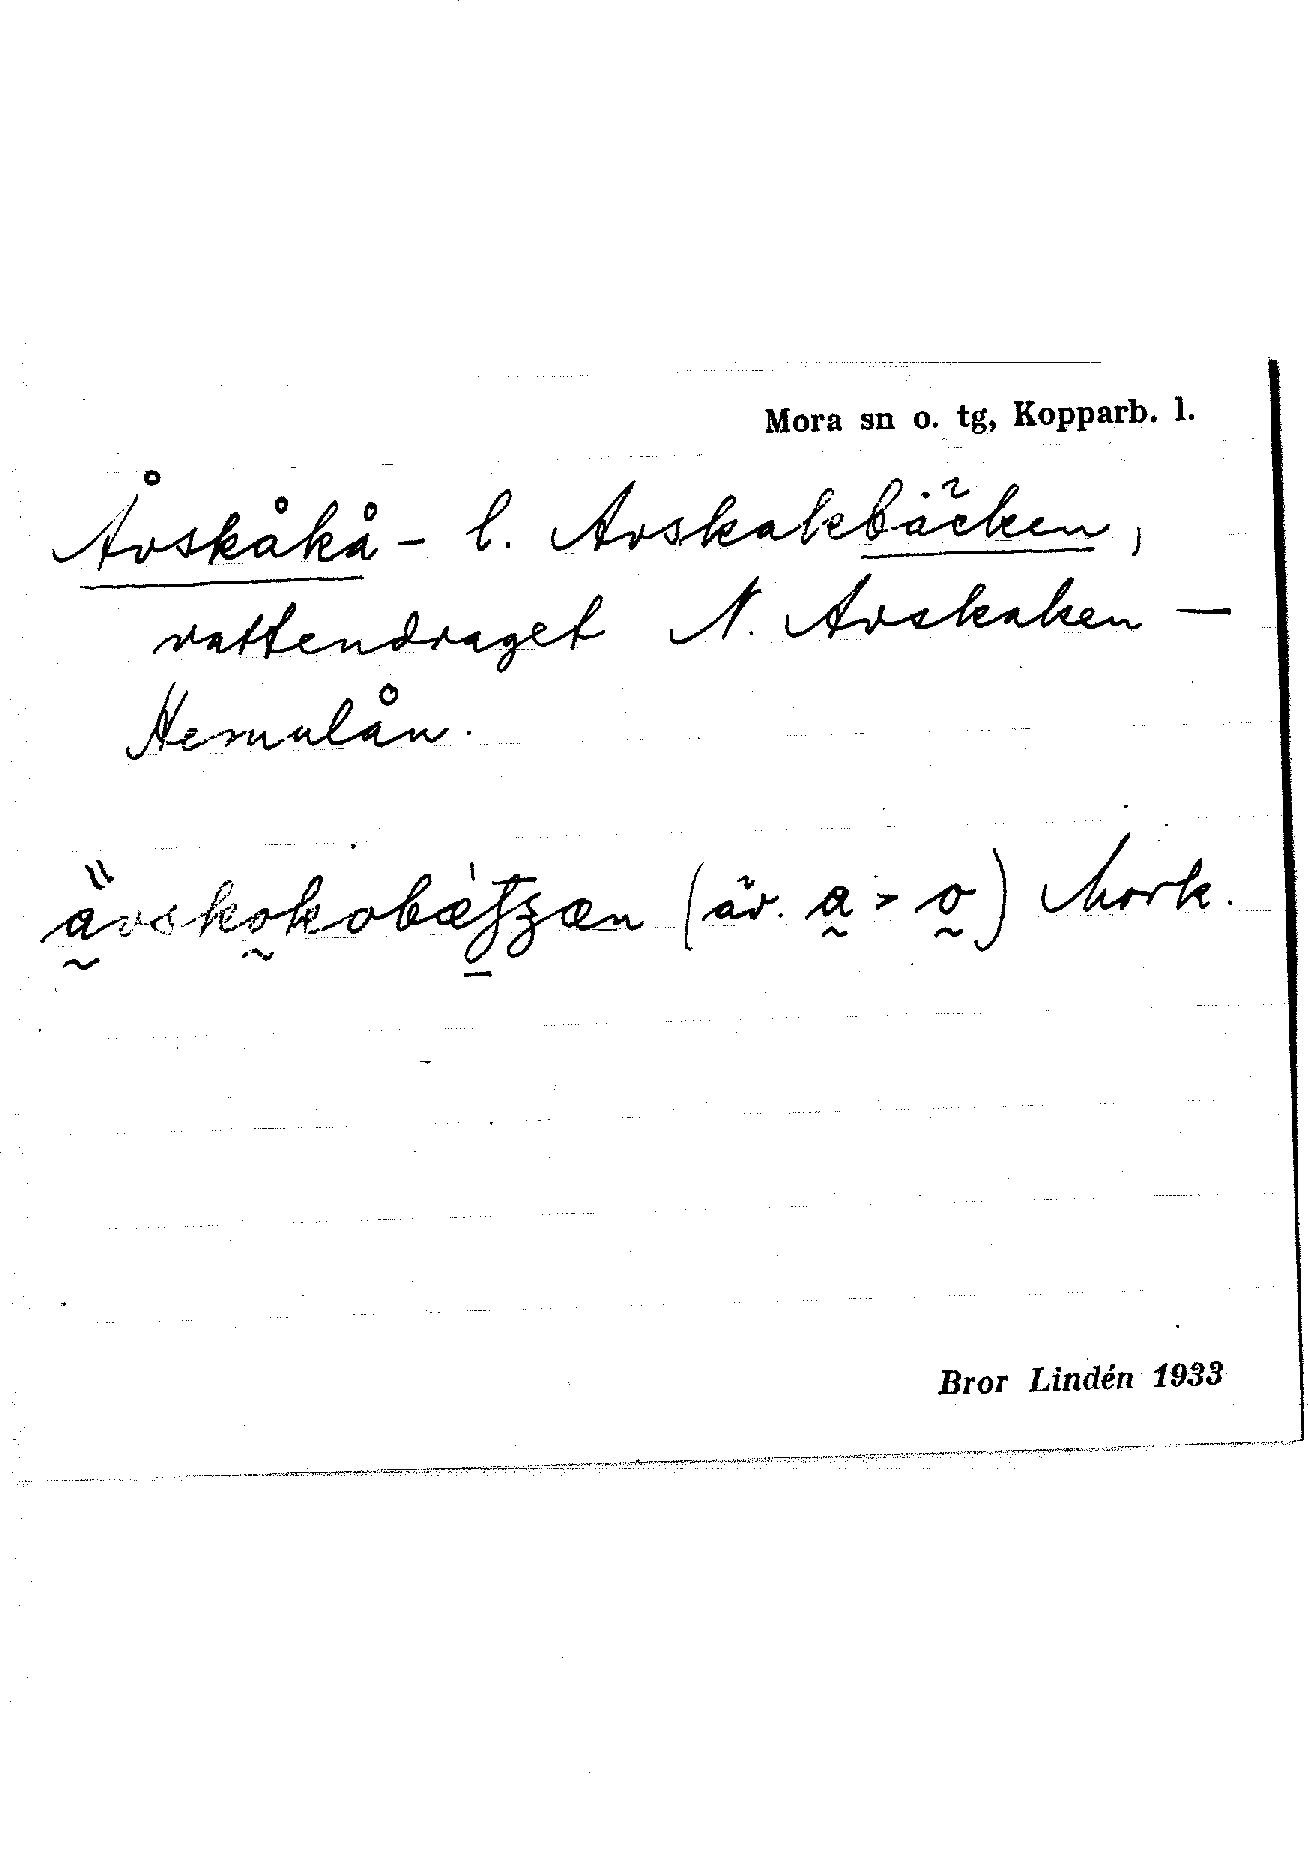 Mora sn o. tg, Kopparb. l.
Åvskåkå- l. Avskakbäcken,
vattendraget N. Avskaken —
Hemulån.
(äv. a > o) Mork.
Bror Lindén 1933